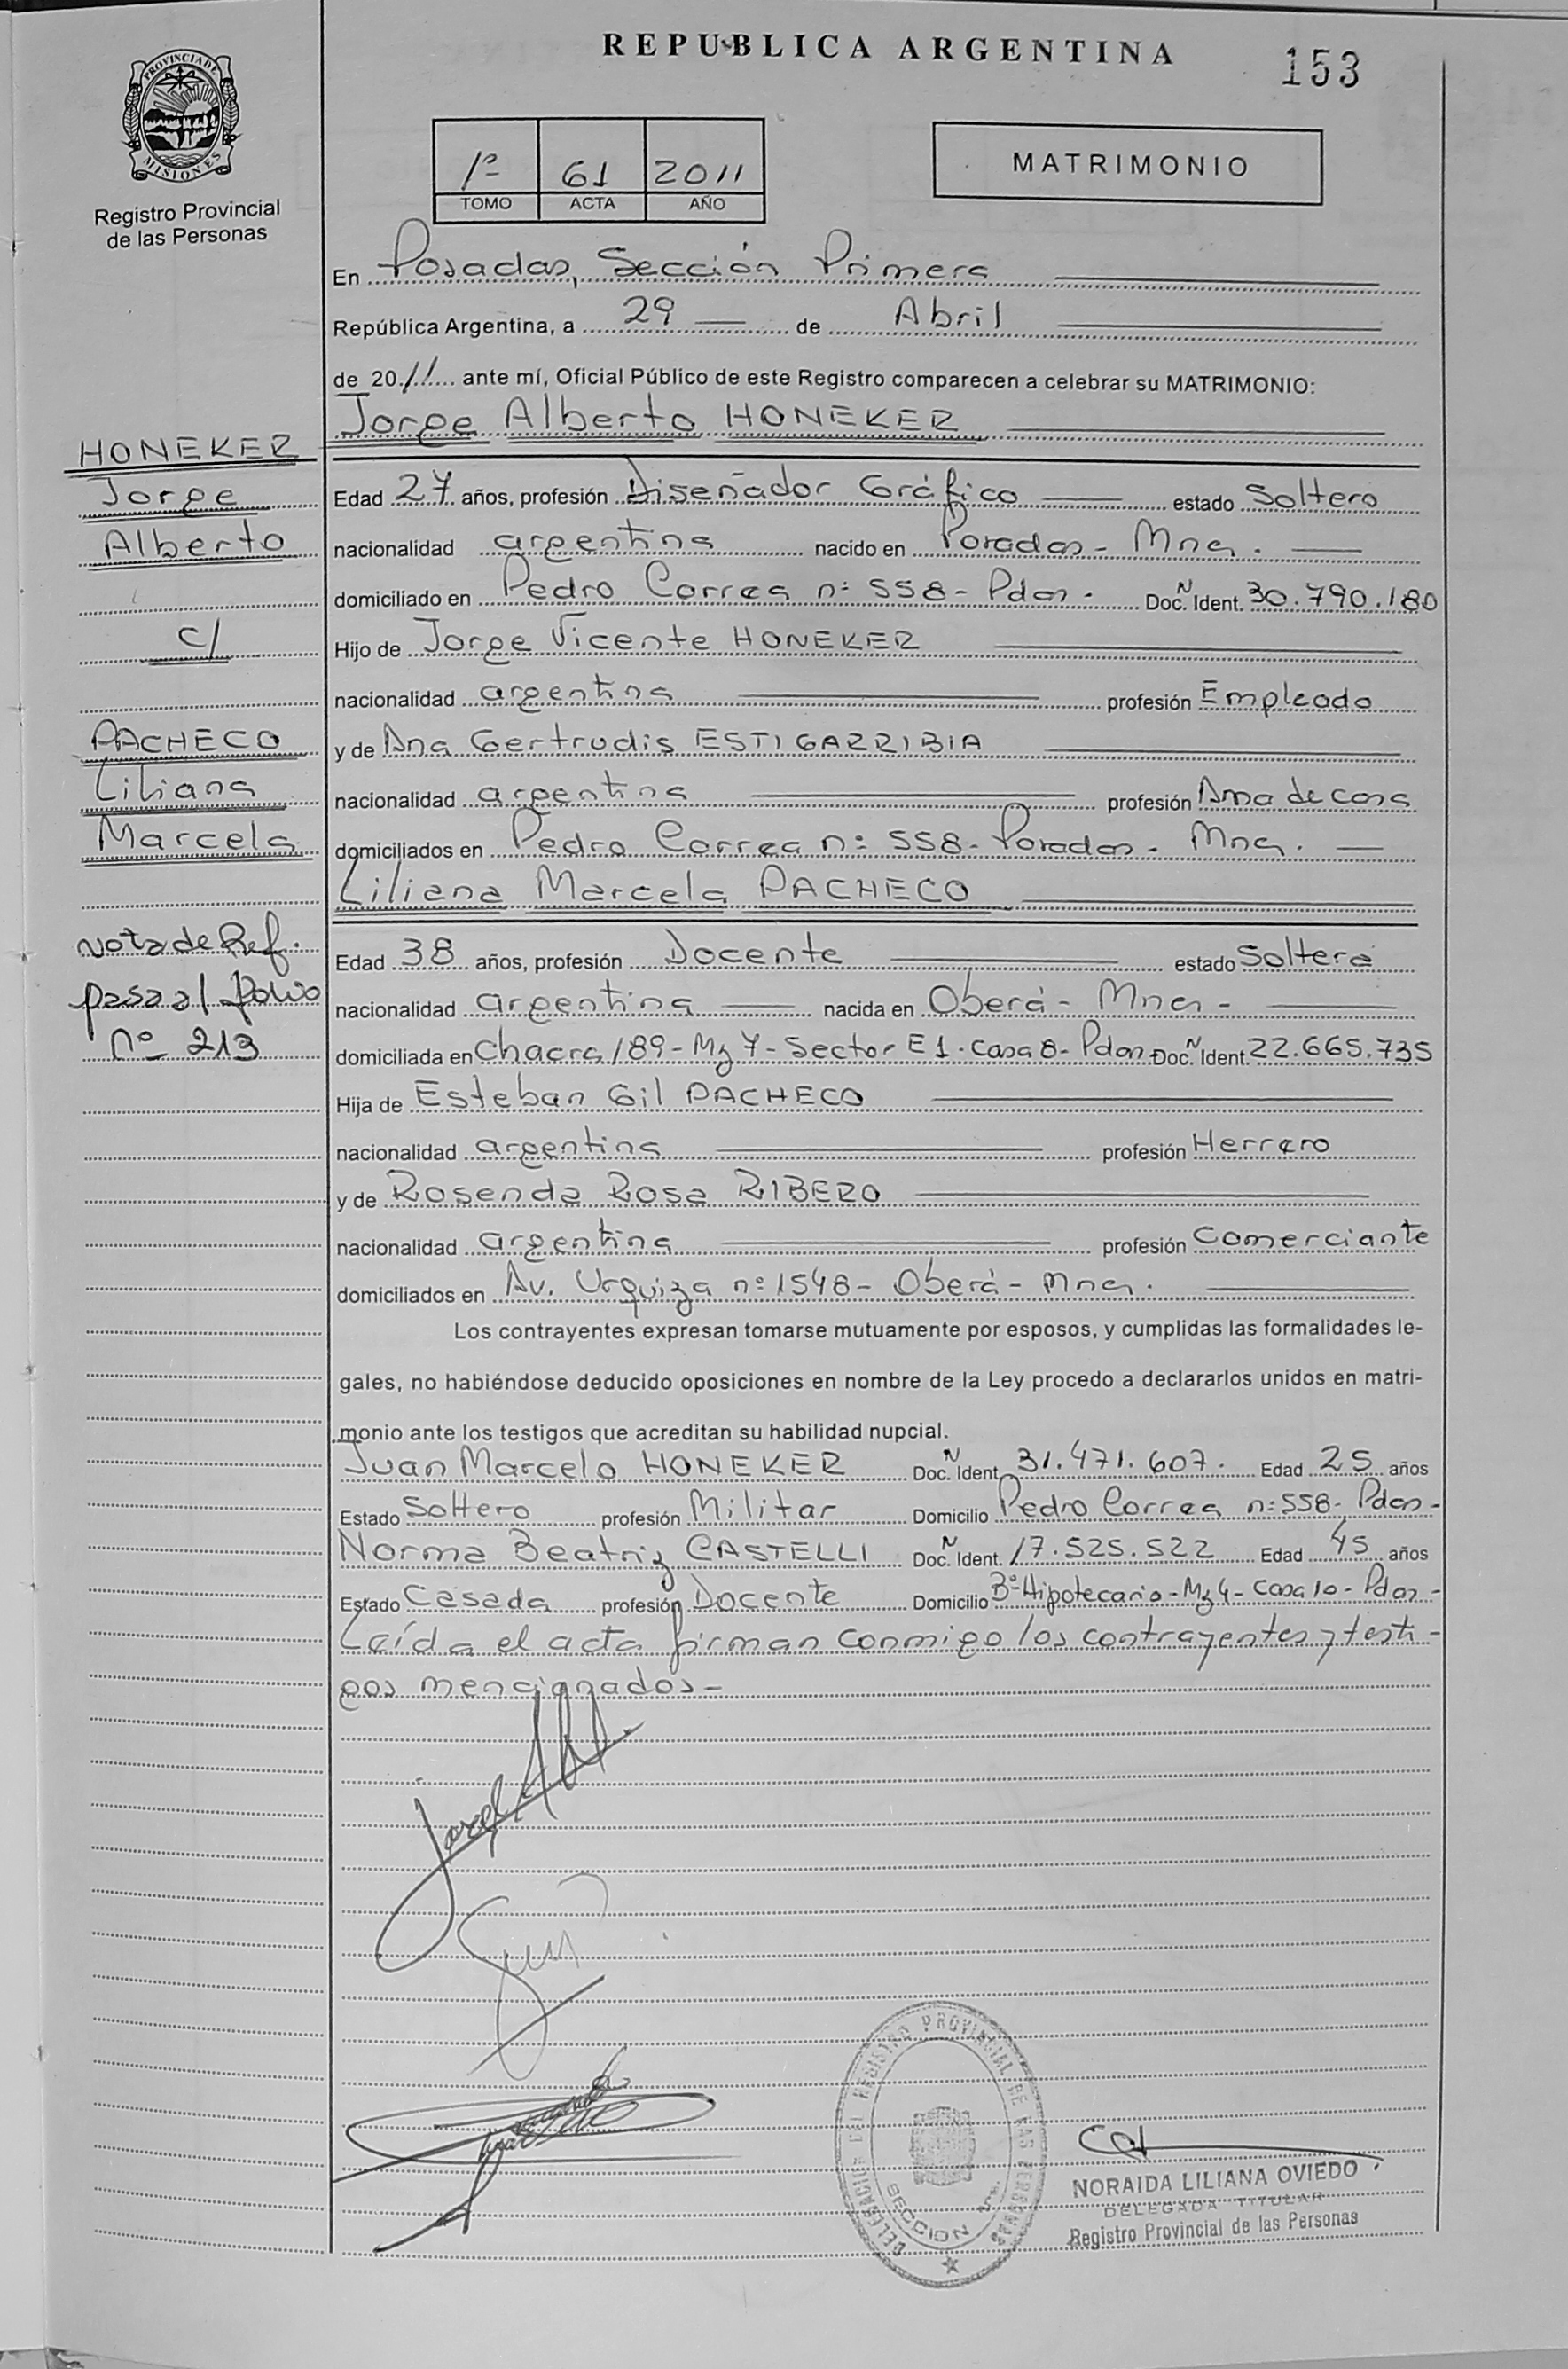 REPUBLICA ARGENTINA
153
PROVINCIA DE
MISIONES
Registro Provincial
de las Personas
1º 61 2011
TOMO ACTA AÑO
MATRIMONIO
En Posadas, Sección Primera
República Argentina, a 29 de Abril
de 2011 ante mí, Oficial Público de este Registro comparecen a celebrar su MATRIMONIO:
Jorge Alberto HONEKER
HONEKER
Jorge
Alberto
c/
PACHECO
Liliana
Marcela
Nota de Ref.
pasa al folio
nº 213
Edad 27 años, profesión Diseñador Gráfico estado Soltero
nacionalidad argentina nacido en Posadas - Mnes.
domiciliado en Pedro Correa nº 558 - Pdas. Doc. N Ident. 30.790.180
Hijo de Jorge Vicente HONEKER
nacionalidad argentina profesión Empleado
y de Ana Gertrudis ESTIGARRIBIA
nacionalidad argentina profesión Ama de casa
domiciliados en Pedro Correa nº 558 - Posadas - Mnes.
Liliana Marcela PACHECO
Edad 38 años, profesión Docente estado Soltera
nacionalidad argentina nacida en Oberá - Mnes -
domiciliada en Chacra 189 - Mz 7 - Sector E1 - casa 8 - Pdas Doc. N Ident 22.665.735
Hija de Esteban Gil PACHECO
nacionalidad argentina profesión Herrero
y de Rosenda Rosa RIBERO
nacionalidad argentina profesión Comerciante
domiciliados en Av. Urquiza nº 1548 - Oberá - Mnes.
Los contrayentes expresan tomarse mutuamente por esposos, y cumplidas las formalidades le-
gales, no habiéndose deducido oposiciones en nombre de la Ley procedo a declararlos unidos en matri-
monio ante los testigos que acreditan su habilidad nupcial.
Juan Marcelo HONEKER Doc. N Ident. 31.471.607. Edad 25 años
Estado Soltero profesión Militar Domicilio Pedro Correa nº 558 - Pdas -
Norma Beatriz CASTELLI Doc. N Ident. 17.525.522 Edad 45 años
Estado Casada profesión Docente Domicilio Bº Hipotecario - Mz 4 - Casa 10 - Pdas -
Leída el acta firman conmigo los contrayentes y testi-
gos mencionados -
DELEGACION DEL REGISTRO PROVINCIAL DE LAS PERSONAS
SECCION
NORAIDA LILIANA OVIEDO
DELEGADA TITULAR
Registro Provincial de las Personas